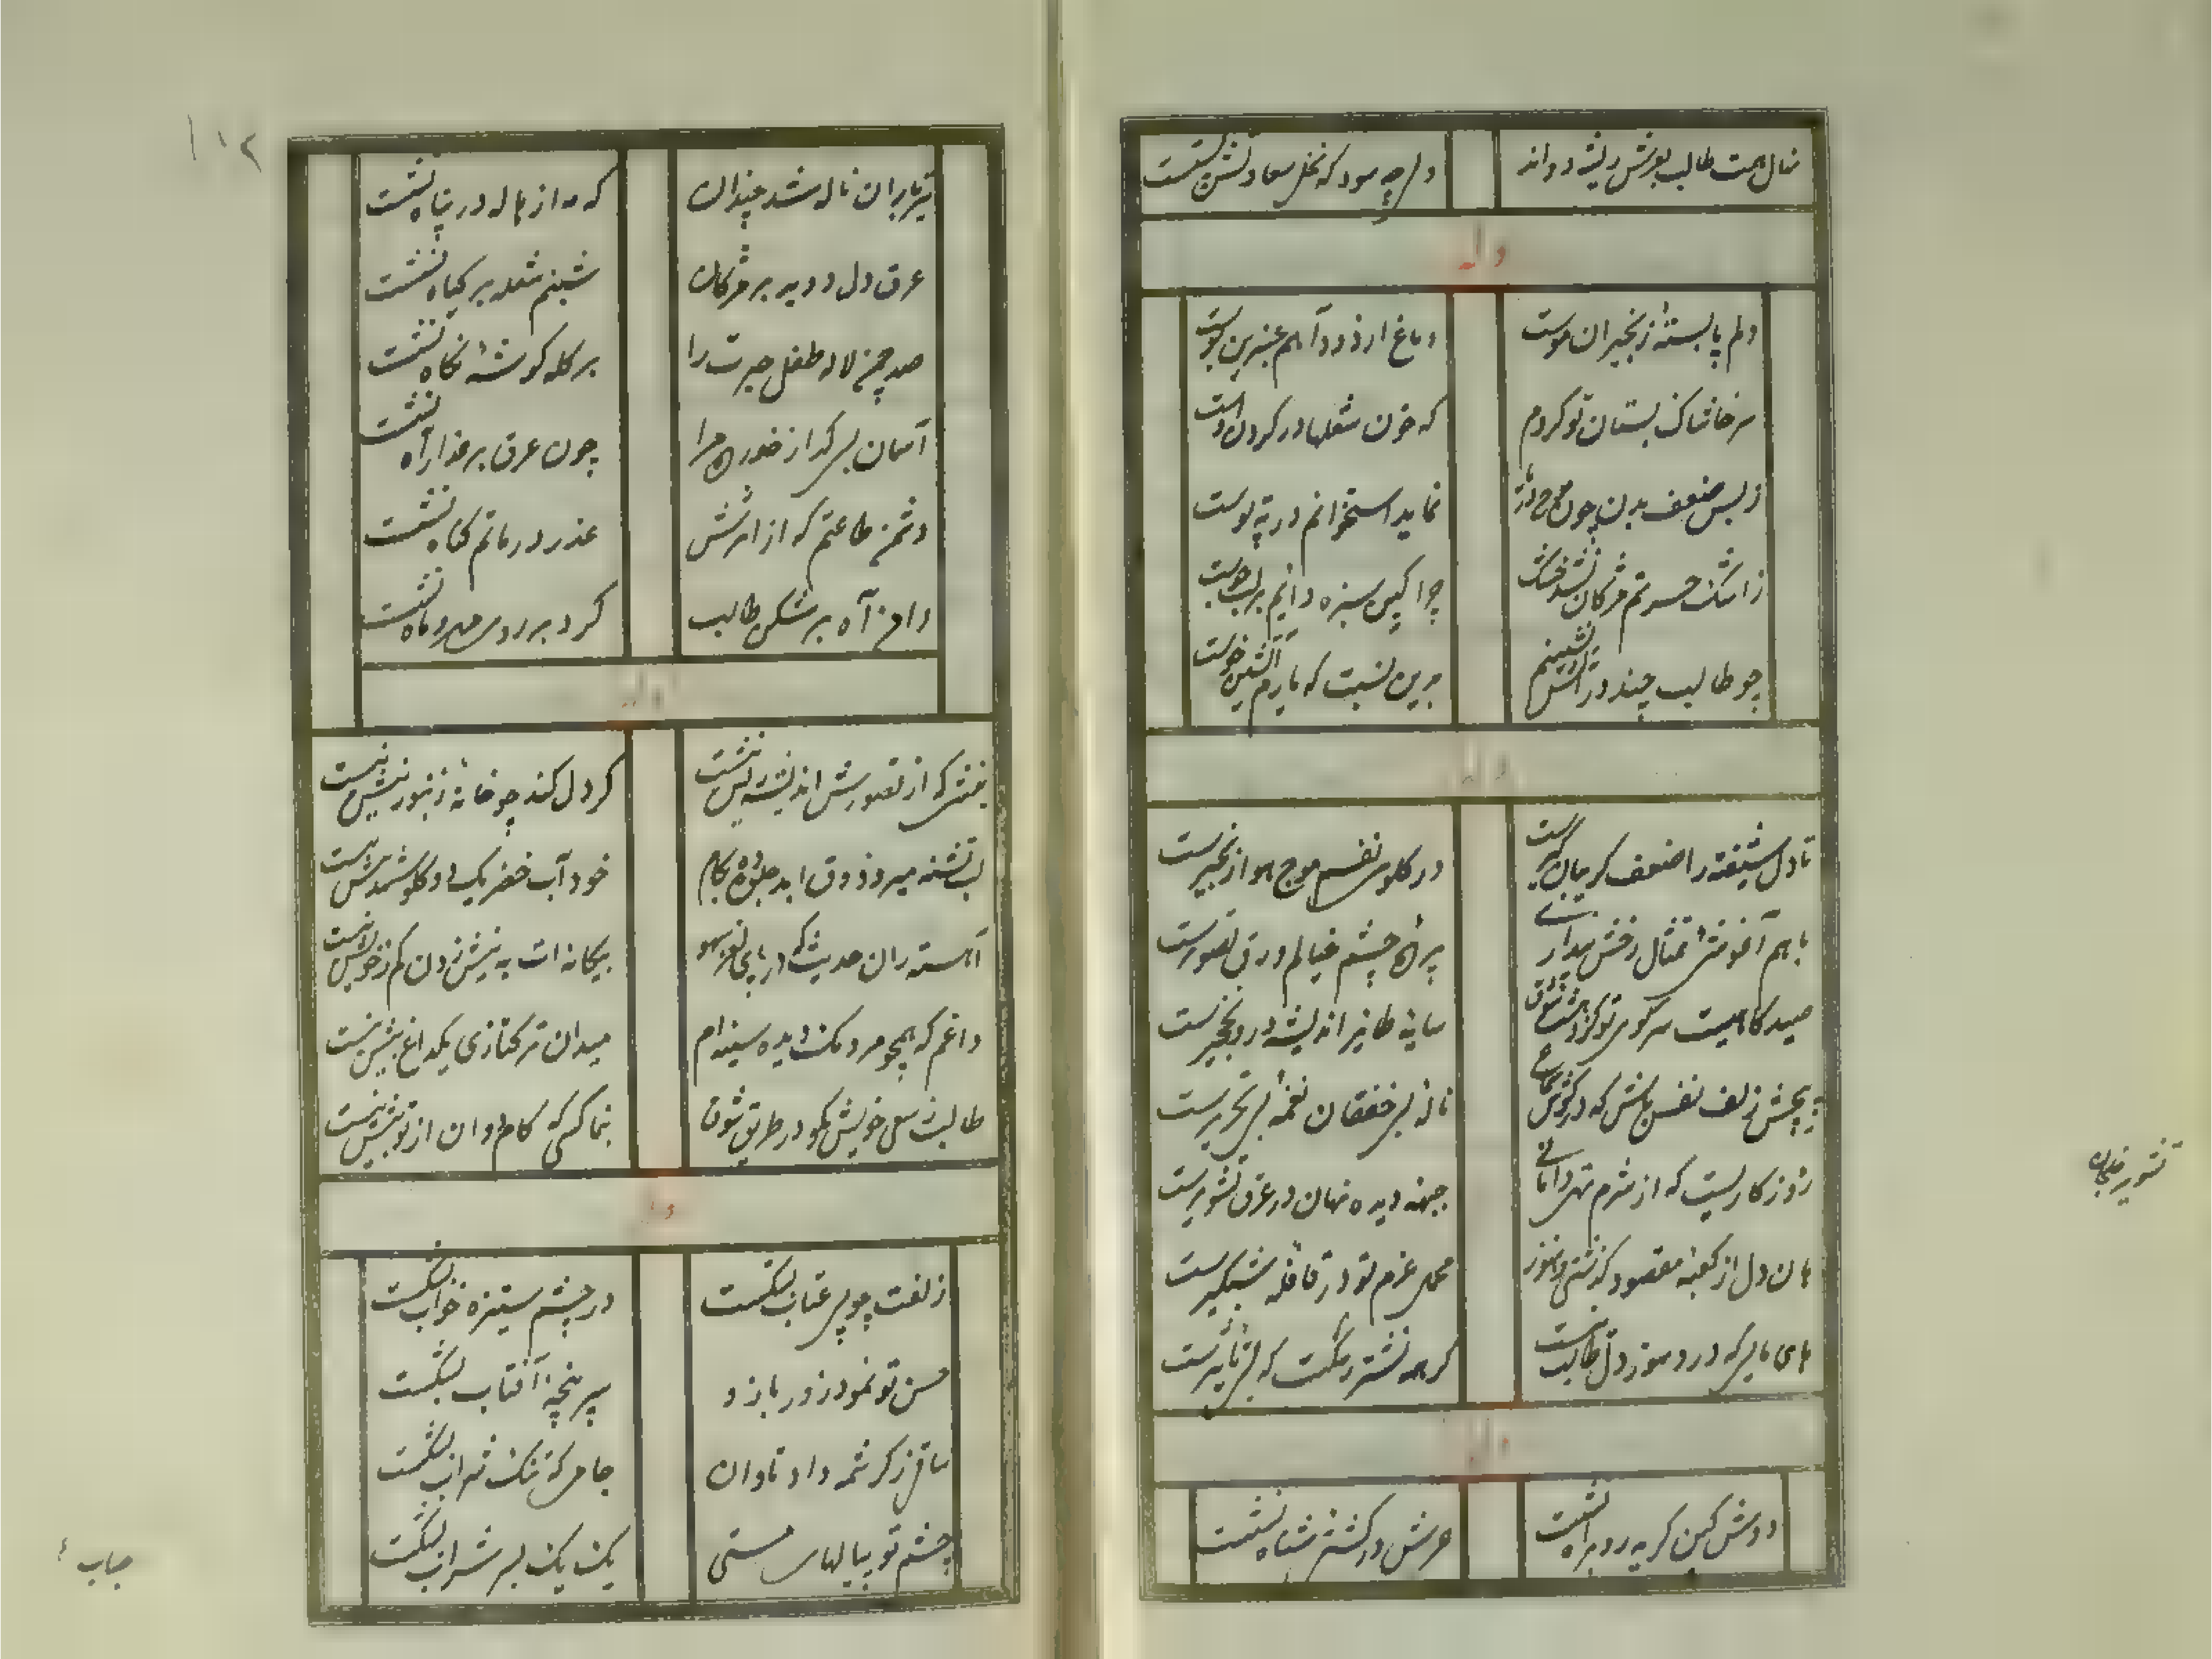 نهال همت طالب بعرش ریشه دواند
ولی چه سود که نخل سعادتش نشکست
وله
دلم پابستهٔ زنجیران موست
دماغ ارزو دآهم عنبرین بوست
سر خاشاک بستان تو کردم
که خون شعلها در گردن اوست
ز بس ضعف بدن چون موج
نماید استخوانم در ته پوست
ز اشک حسرتم مژکان نشد خشک
چرا کین سبزه دایم بر لب جوست
چو طالب چند در آتش نشینم
برین نسبت که یارم آتشین خوست
وله
تا دل شیفته را ضعف کریبان کیرست
در کلوی نفسم موج هوا زنجیرست
باهم آغوشی تمثال رخش بیداری
پردهٔ چشم خیالم ورق تصویرست
صیدکاهیست سر کوی تو کز
سایهٔ طایر اندیشه درو نخچیرست
پیچش زلف نفس بس که در کوش سماع
نالهٔ بی خفقان نغمهٔ بی تحریرست
روزکاریست که از شرم تهی دامانی
جبهه دیده نهان در عرق تشویرست
هان دل از کعبهٔ مقصود کذشتی و هنوز
محمل عزم تو در قافلهٔ شبکیرست
های های که درد سوز دل طالب هست
کریه نشتر کست که بی تاثیرست
وله
دوش کین کریه رو براه نشست
عرش در کشتی شناه نشست
تشویر خجالت
۱۰۲
تیرباران ناله شد چندان
که مه از هاله در پناه نشست
عرق دل دوید بر مژکان
شبنم شعله بر کیاه نشست
صد چمن لاله طفل حیرت را
بر کله کوشهٔ نکاه نشست
آسمان بس کداز خورد مرا
چون عرق بر عذار آه نشست
دشمن طاعتم که از اثرش
عذر در ماتم کناه نشست
دامن آه بر شکن طالب
کرد بر روی مهر و ماه نشست
وله
عشقی که از تصورش اندیشه ریش نیست
کر دل کند چو خانهٔ زنبور نیش نیست
لب تشنه میرد ذوق ابد جلوه کام
خود آب خضر یک دو کلو شمه بیش نیست
آهسته ران حدیث که در پای نغز سهو
بیکانه ات به نیش زدن کم ز خویش نیست
داغم که همچو مردمک دیده سینه ام
میدان ترکتازی یکداغ بیش نیست
طالب ز سعی خویش مکو در طریق شوق
بنما کسی که کام دوان از تو پیش نیست
وله
زلفت چو پر عتاب بشکست
در چشم ستیزه خواب بشکست
حسن تو نمود زور بازو
سرپنجهٔ آفتاب بشکست
ساقی ز کرشمه داد تاوان
جامی که تنک شراب بشکست
چشم تو پیالهای مستی
یک یک بسر شراب بشکست
حباب